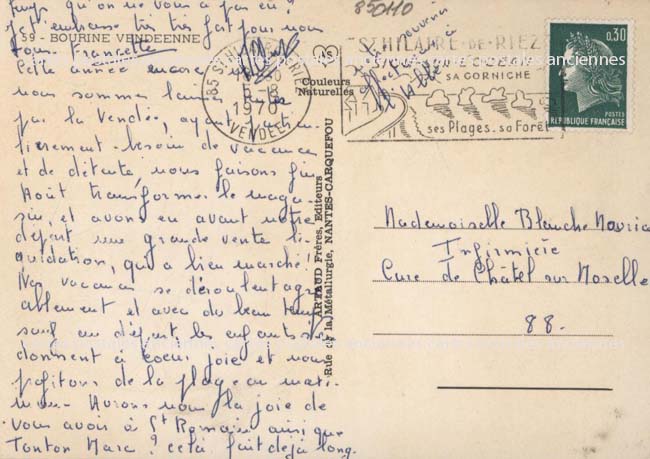 temps qu'on ne vous a pas eu !
J'embrasse très très fort pour nous
tous. Francette
59 - BOURINE VENDEENNE
Cette année encore
nous sommes
par la Vendée, ayant
besoin de vacances
et de détente, nous faisons fin
Août transformer le maga-
sin, et avons eu avant notre
départ une grande vente li-
quidation, qui a bien marché !
Nos vacances se déroulent agré-
ablement et avec du beau temps
sauf au départ, les enfants s'en
donnent à coeur joie et nous
profitons de la plage au maxi-
mum. Aurons nous la joie de
vous avoir à St Romain ainsi que
Tonton Marc ? cela fait déjà long.
Couleurs
Naturelles
ARTAUD Frères, Editeurs
Rue de la Métallurgie, NANTES-CARQUEFOU
85 ST HILAIRE
5-8
1970
VENDÉE
850110
ST HILAIRE-DE-RIEZ
SA CORNICHE
ses Plages - sa Forêt
0,30
POSTES
REPUBLIQUE FRANÇAISE
Mademoiselle Blanche
Infirmière
Cure de Châtel sur Moselle
88.